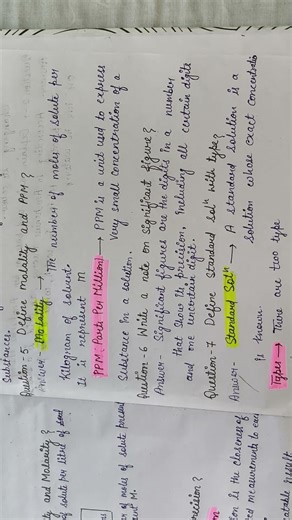 substances.
Question- 5 Define molality and PPM?
Answer- Molality → The number of moles of solute per
Kilogram of solvent.
It is represent m
PPM. Parts Per Million → PPM is a unit used to express
Very small concentration of a
Substance in a solution.
Question - 6 Write a note on Significant figure?
Answer- Significant figures are the digits in a number
that show its precision. Including all certain digits
and one uncertain digit.
Question - 7 Define Standard solⁿ with type?
Answer Standard Solⁿ → A standard solution is a
solution whose exact concentratio
is known.
Types → There are two type
and Molarity?
of solute per litre of
of moles of solute present
M.
precision?
is the closeness of
measurements to
result